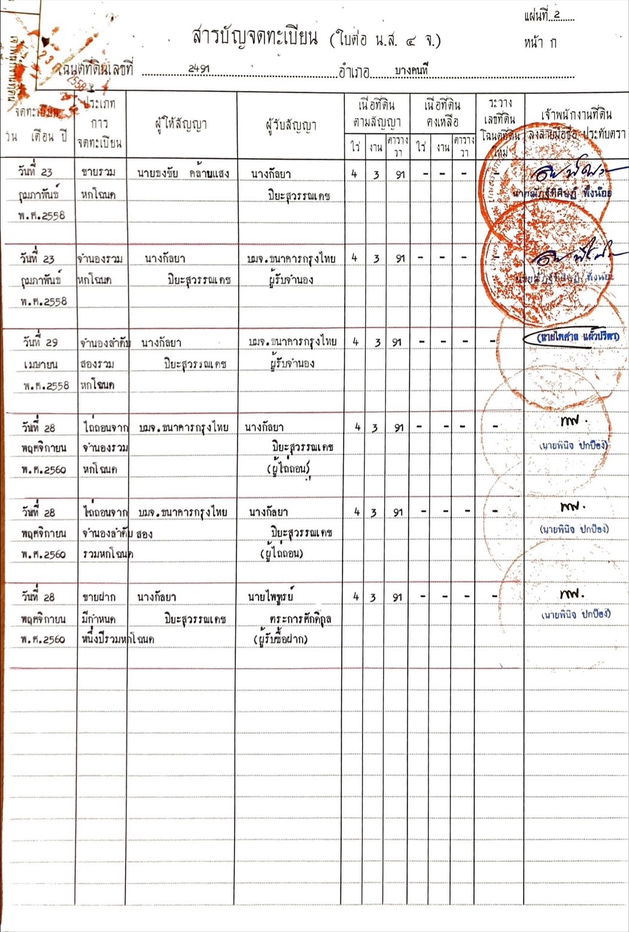 แผ่นที่ 2
สารบัญจดทะเบียน (ใบต่อ น.ส. ๔ จ.)
หน้า ก
โฉนดที่ดินเลขที่ 2491 อำเภอ บางคนที
จดทะเบียน วัน เดือน ปี
ประเภท การ จดทะเบียน
ผู้ให้สัญญา
ผู้รับสัญญา
เนื้อที่ดิน ตามสัญญา
ไร่ งาน ตารางวา
เนื้อที่ดิน คงเหลือ
ไร่ งาน ตารางวา
ระวาง เลขที่ดิน โฉนดที่ดิน ใหม่
เจ้าพนักงานที่ดิน ลงลายมือชื่อ ประทับตรา
วันที่ 23 ขายรวม นายธงชัย คล้ายแสง นางกัลยา 4 3 91 - - - -
กุมภาพันธ์ หกโฉนด ปิยะสุวรรณเดช
พ.ศ.2558
วันที่ 23 จำนองรวม นางกัลยา บมจ.ธนาคารกรุงไทย 4 3 91 - - - -
กุมภาพันธ์ หกโฉนด ปิยะสุวรรณเดช ผู้รับจำนอง
พ.ศ.2558
วันที่ 29 จำนองลำดับ นางกัลยา บมจ.ธนาคารกรุงไทย 4 3 91 - - - - (นายไพศาล แก้วปรีดา)
เมษายน สองรวม ปิยะสุวรรณเดช ผู้รับจำนอง
พ.ศ.2558 หกโฉนด
วันที่ 28 ไถ่ถอนจาก บมจ.ธนาคารกรุงไทย นางกัลยา 4 3 91 - - - -
พฤศจิกายน จำนองรวม ปิยะสุวรรณเดช (นายพินิจ ปกป้อง)
พ.ศ.2560 หกโฉนด (ผู้ไถ่ถอน)
วันที่ 28 ไถ่ถอนจาก บมจ.ธนาคารกรุงไทย นางกัลยา 4 3 91 - - - -
พฤศจิกายน จำนองลำดับ สอง ปิยะสุวรรณเดช (นายพินิจ ปกป้อง)
พ.ศ.2560 รวมหกโฉนด (ผู้ไถ่ถอน)
วันที่ 28 ขายฝาก นางกัลยา นายไพฑูรย์ 4 3 91 - - - -
พฤศจิกายน มีกำหนด ปิยะสุวรรณเดช ตระการศักดิกุล (นายพินิจ ปกป้อง)
พ.ศ.2560 หนึ่งปีรวมหกโฉนด (ผู้รับซื้อฝาก)